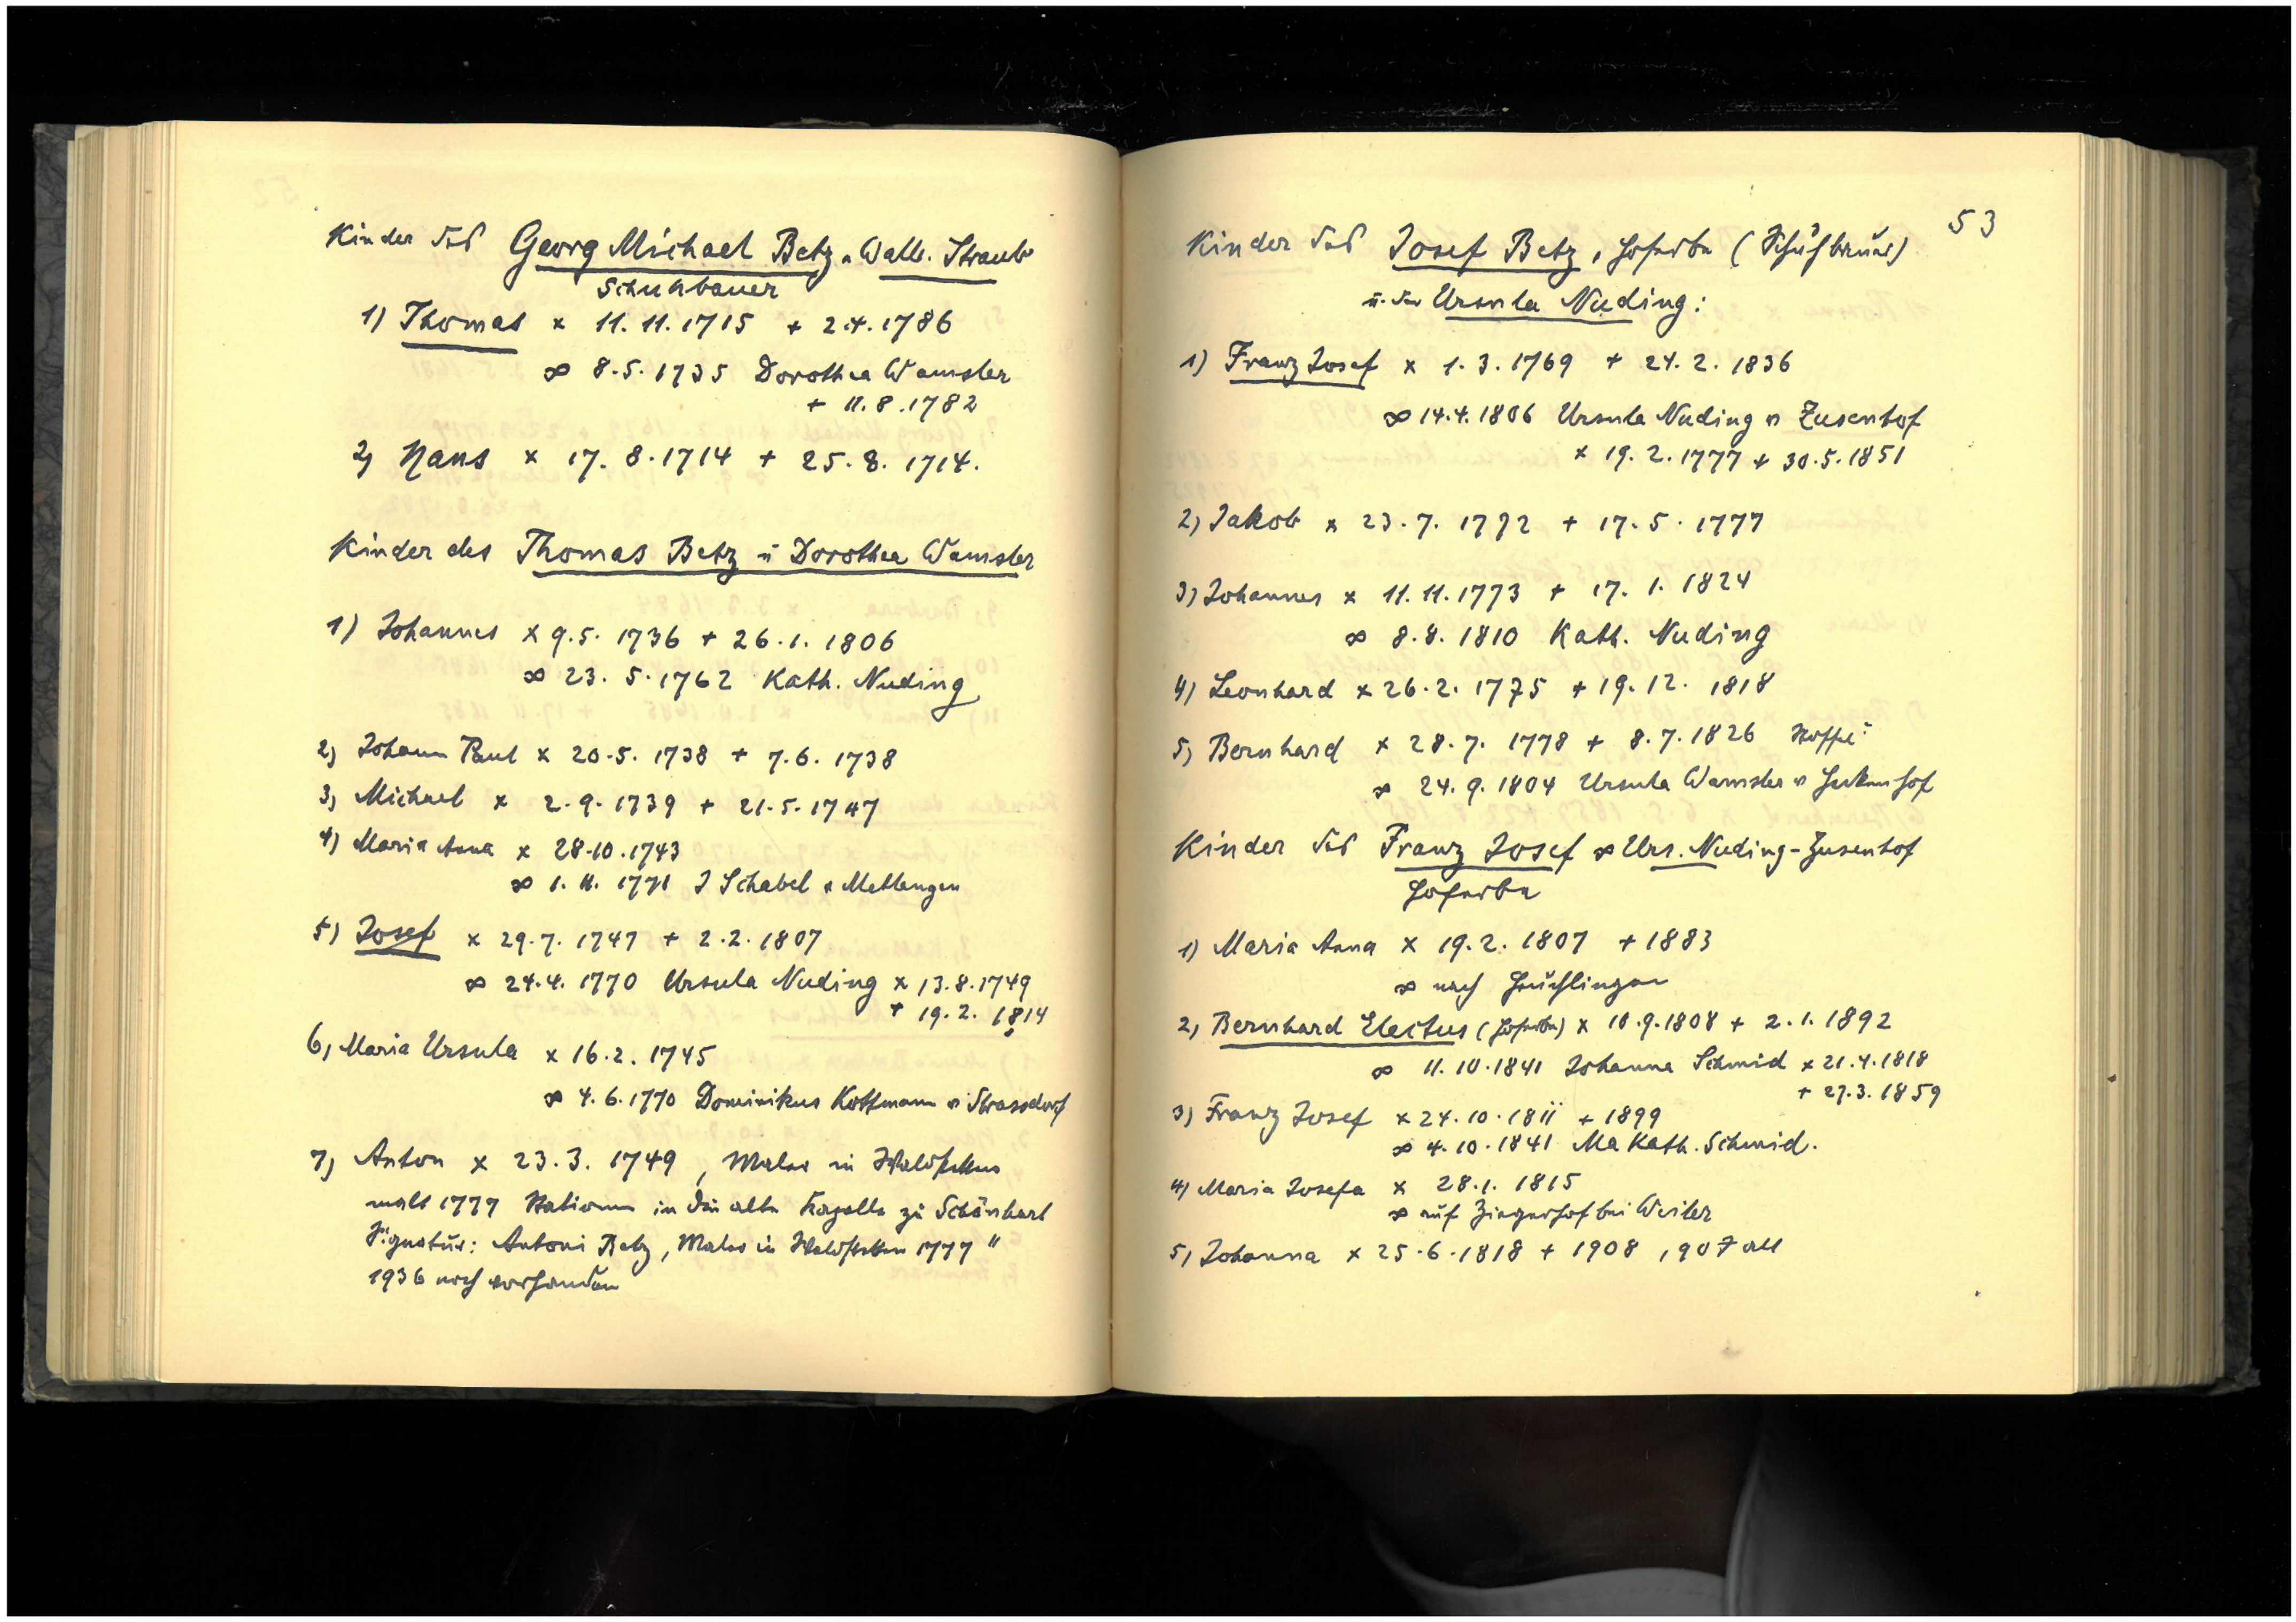 Kinder des Georg Michael Betz u. Walb. Straub
Schuhbauer
1) Thomas × 11.11.1715 + 2.4.1786
∞ 8.5.1735 Dorothea Wamsler
+ 11.8.1782
2) Hans × 17.8.1714 + 25.8.1714.
Kinder des Thomas Betz u Dorothea Wamsler
1) Johannes × 9.5.1736 + 26.1.1806
∞ 23.5.1762 Kath. Nuding
2) Johann Paul × 20.5.1738 + 7.6.1738
3) Michael × 2.9.1739 + 21.5.1747
4) Maria Anna × 28.10.1743
∞ 1.11.1771 J Schabel v Metlangen
5) Josef × 29.7.1747 + 2.2.1807
∞ 24.4.1770 Ursula Nuding × 13.8.1749
+ 19.2.1814
6) Maria Ursula × 16.2.1745
∞ 4.6.1770 Dominikus Kottmann v Strassdorf
7) Anton × 23.3.1749, Maler in Waldstetten
malt 1777 Stationen in die alte Kapelle zu Schönhart
Signatur: Antoni Betz, Maler in Waldstetten 1777"
1936 noch vorhanden
53
Kinder des Josef Betz, Hoferbe (Schuhbauer)
u. der Ursula Nuding:
1) Franz Josef × 1.3.1769 + 24.2.1836
∞ 14.4.1806 Ursula Nuding v Zusenhof
× 19.2.1777 + 30.5.1851
2) Jakob × 23.7.1772 + 17.5.1777
3) Johannes × 11.11.1773 + 17.1.1824
∞ 8.8.1810 Kath. Nuding
4) Leonhard × 26.2.1775 + 19.12.1818
5) Bernhard × 28.7.1778 + 8.7.1826
∞ 24.9.1804 Ursula Wamsler v
Kinder des Franz Josef ∞ Urs. Nuding-Zusenhof
Hoferbe
1) Maria Anna × 19.2.1807 + 1883
∞ nach Heuchlingen
2) Bernhard Electus (Hoferbe) × 10.9.1808 + 2.1.1892
∞ 11.10.1841 Johanna Schmid × 21.4.1818
+ 27.3.1859
3) Franz Josef × 24.10.1811 + 1899
∞ 4.10.1841 Ma Kath. Schmid.
4) Maria Josefa × 28.1.1815
∞ auf Ziegerhof bei Weiler
5) Johanna × 25.6.1818 + 1908, 90 J alt